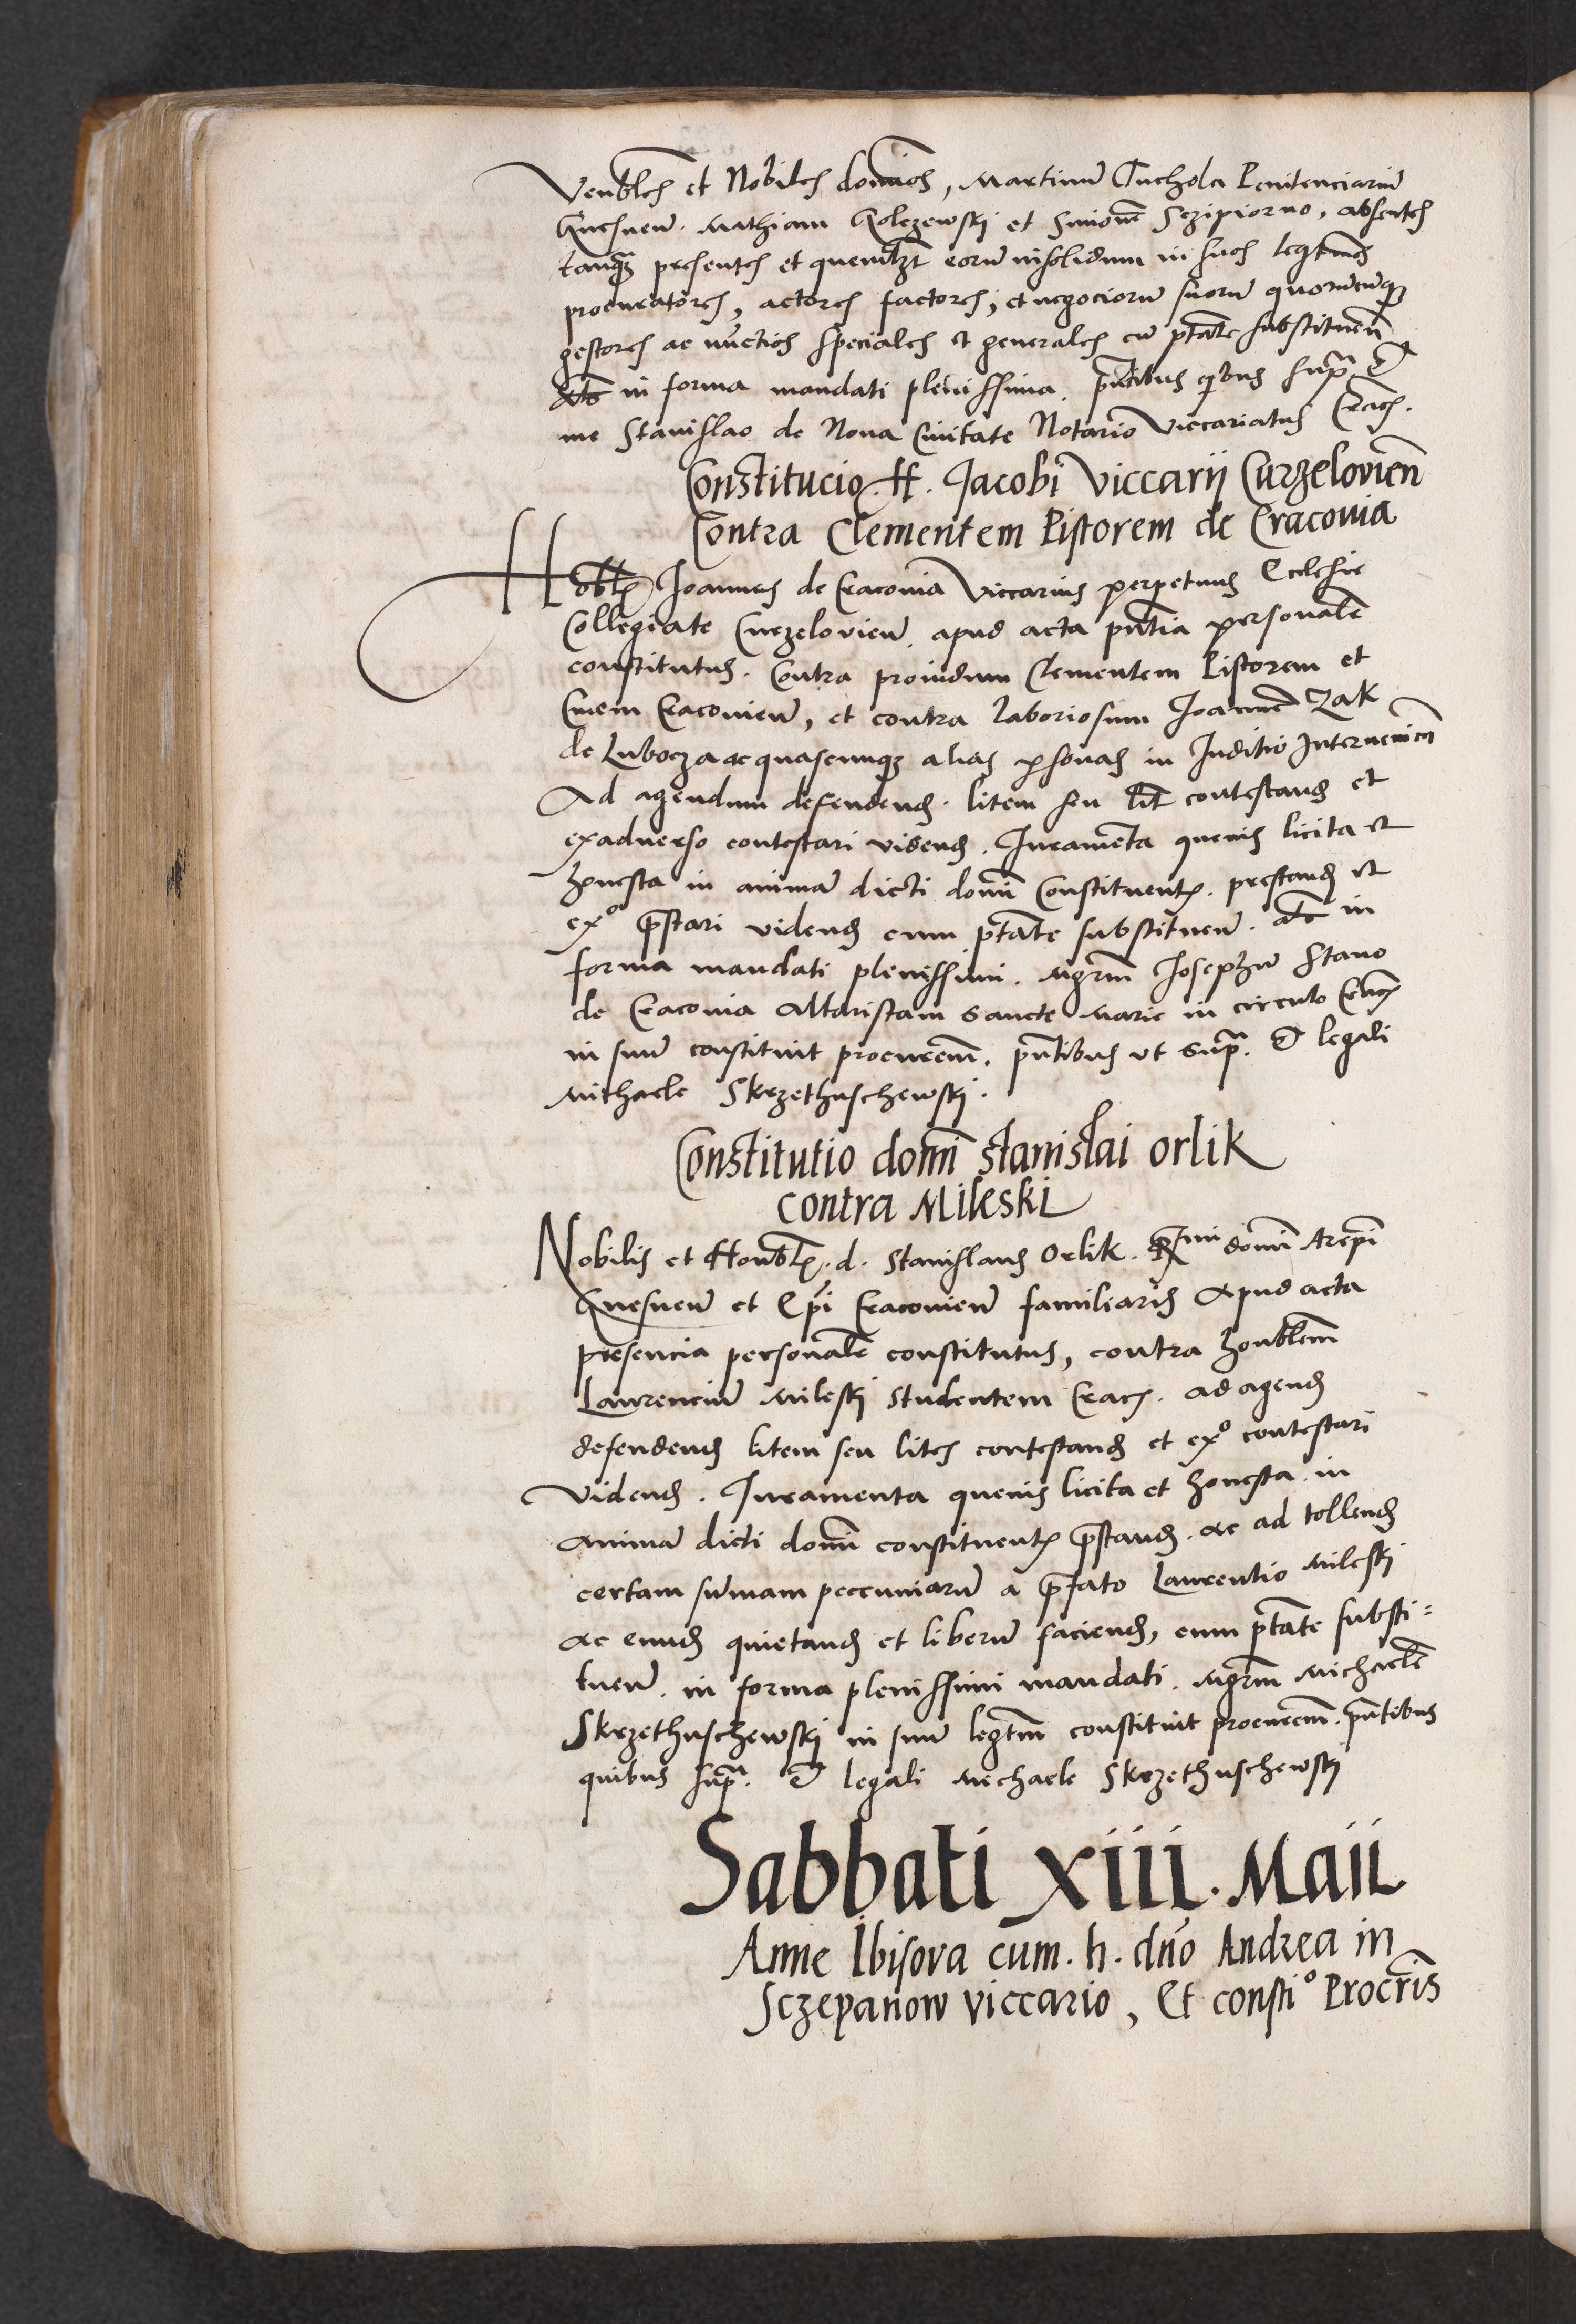 Venbles et Nobiles domios, Martinu Tuchola Penitenciariu
Gnesnen. Mathiam Golczewskj et Simone Sczipiorno, absentes
tanq presentes et quemlzt eoru insolidum in suos legtimos
procuratores, actores factores, et negocioru suoru quorucunq
gestores ac nuctios speciales et generales cu ptate substituen
etc in forma mandati plenissima. pntibus qibus supra. Et
me Stanislao de Nova Civitate Notario Viccariatus Crac.
Constitucio. H. Jacobi Viccarij Curzelovien
Contra Clementem Pistorem de Cracovia
Hoblis Joannes de Cracovia Viccarius perpetuus Ecclesie
Collegiate Curzelovien. apud acta pntia personale
constitutus. Contra providum Clementem Pistorem et
Civem Cracovien, et contra laboriosum Joanne Zak
de Luboczza ac quascunq alias psonas in Juditio Intervenien
Ad agendum defendend. litem seu lit contestand et
exadverso contestari vidend. Juramenta quevis licita et
honesta in anima dicti domi Constituentis. prestand et
exo pstari vidend cum ptate substituen. etc in
forma mandati plenissimi. Mgrm Josephu Stano
de Cracovia Altaristam Sancte Marie in circulo Crac
in suu constituit procurem. pntibus ut supra. Et legali
Michaele Skrzethuschewskj.
Constitutio domi Stanislai Orlik
contra Mileski
Nobilis et Honblis. d. Stanislaus Orlik. Rmi domi Arepi
Gnesnen et Epi Cracovien familiaris Apud acta
presencia personale constitutus, contra honblem
Laurenciu Mileskj Studentem Crac. ad agend
defendend litem seu lites contestand et exo contestari
vidend. Juramenta quevis licita et honesta. in
anima dicti domi constituentis pstand. ac ad tollend
certam sumam peccuniaru a pfato Laurentio Mileskj
ac eund quietand et liberu faciend, cum ptate substi=
tuen. in forma plenissimi mandati. Mgrm Michaele
Skrzethuschewskj in suu legtm constituit procurem. pntibus
quibus supra. Et legali Michaele Skrzethuschewskj
Sabbati xiii. Maii
Anne Ibisova cum. h. dno Andrea in
Sczepanow viccario, Et constio Procris